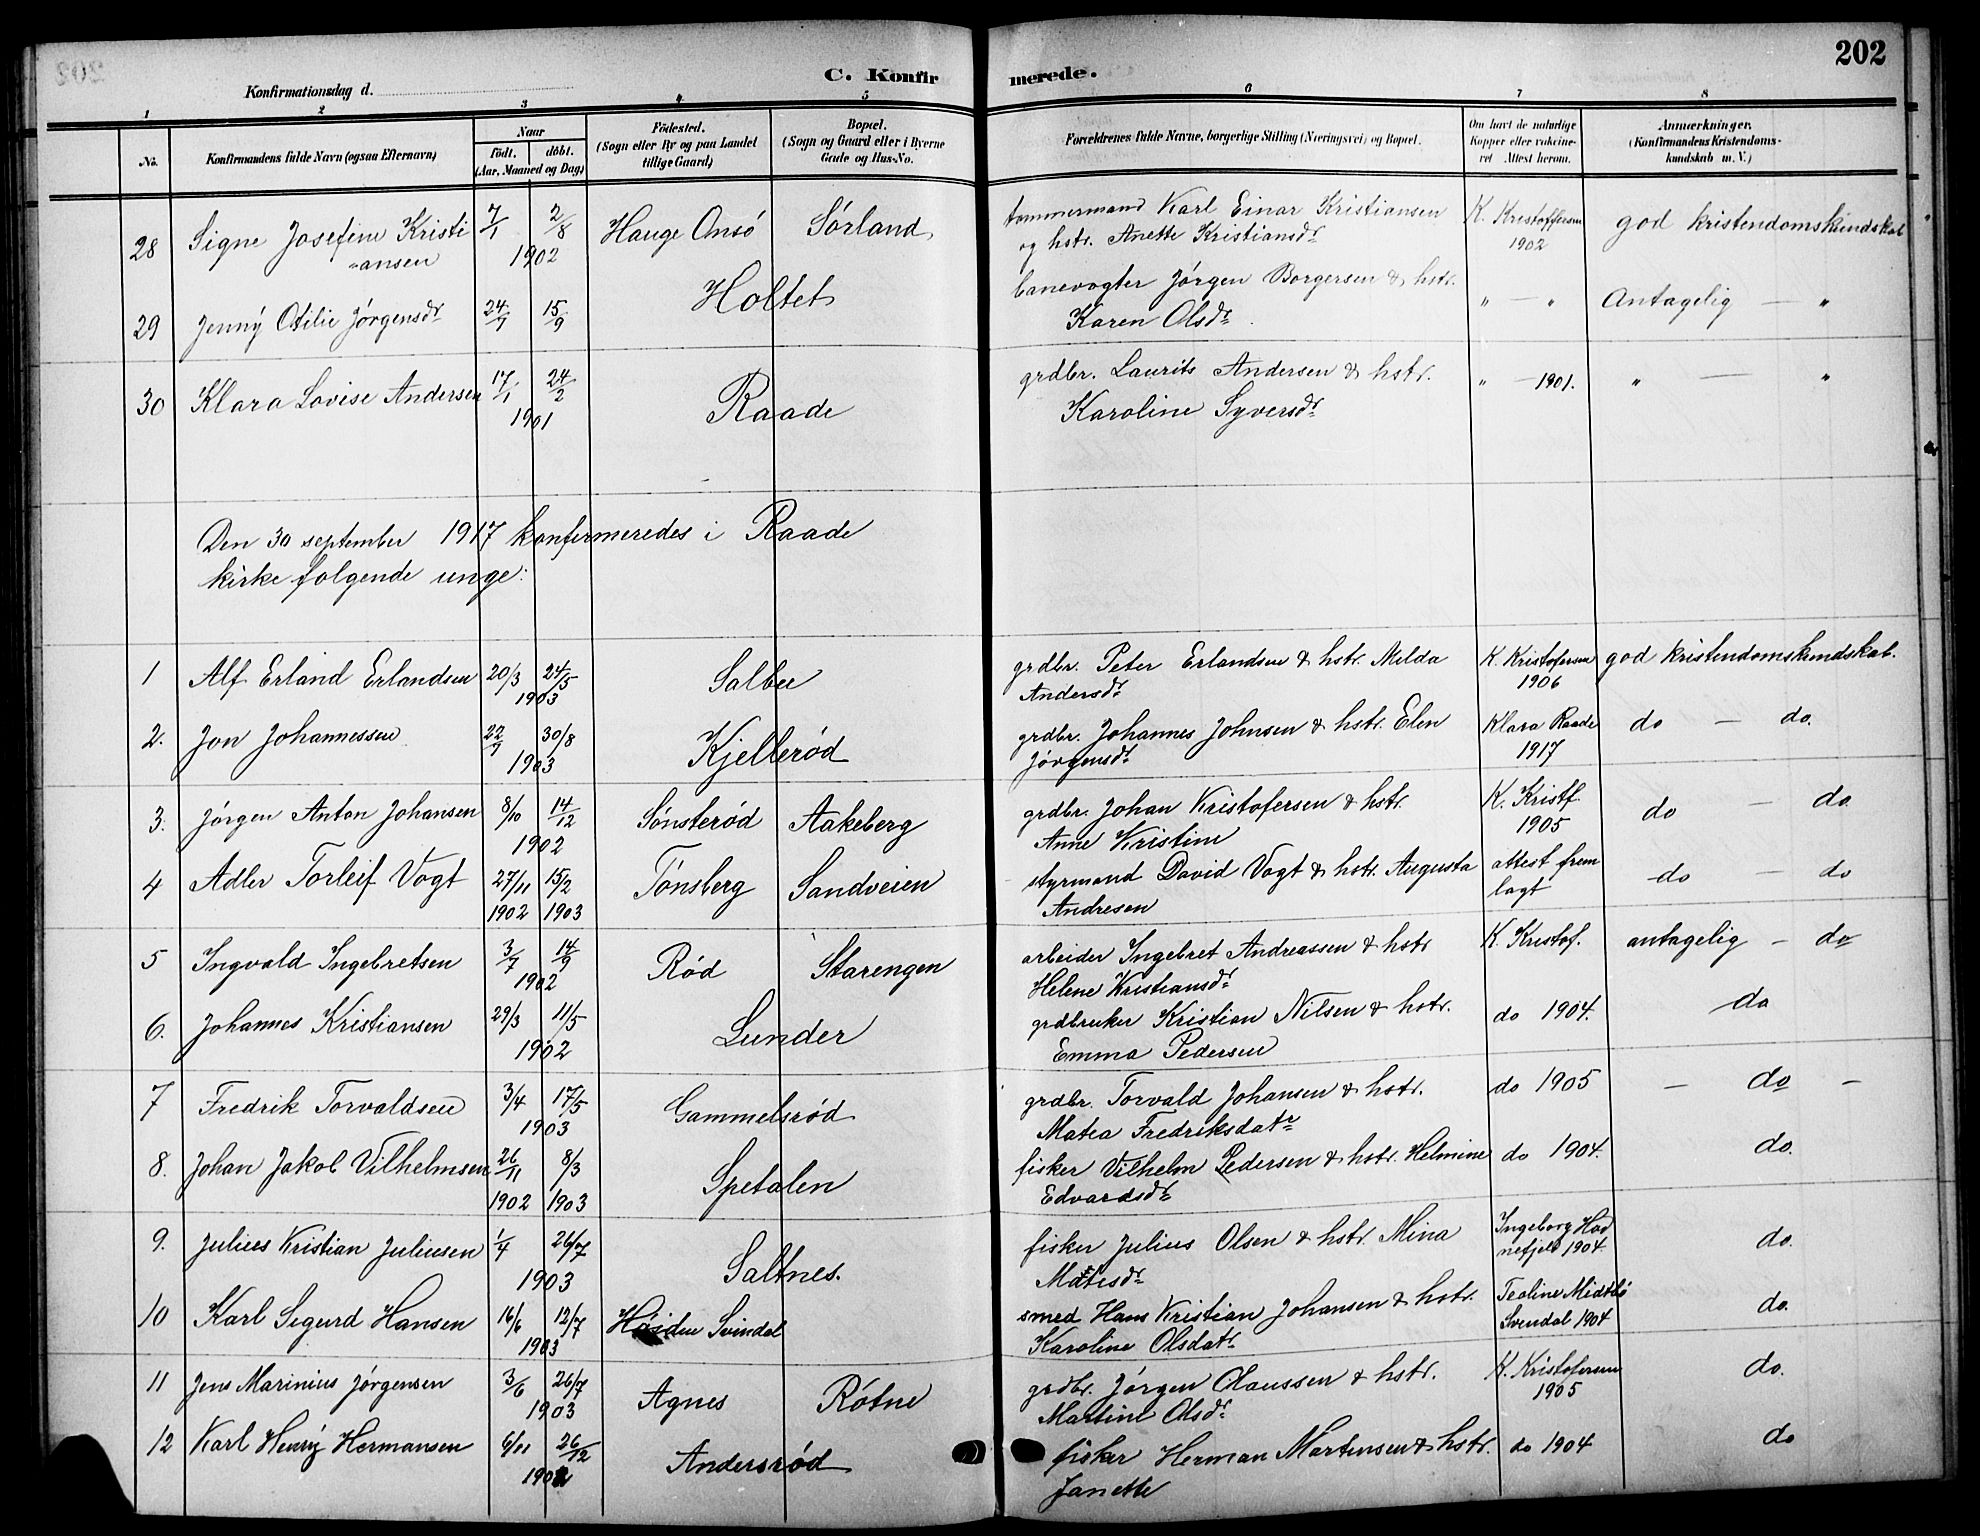 202
C. Konfirmerede.
Konfirmationsdag d.
1 2 3 4 5 6 7 8
No.
Konfirmandens fulde Navn (ogsaa Efternavn)
Naar
født. døbt.
(Aar, Maaned og Dag)
Fødested.
(Sogn eller By og paa Landet
tillige Gaard)
Bopæl.
(Sogn og Gaard eller i Byerne
Gade og Hus-No.
Forældrenes fulde Navne, borgerlige Stilling (Næringsvei) og Bopæl.
Om havt de naturlige
Kopper eller vakcine-
ret Attest herom.
Anmærkninger.
(Konfirmandens Kristendoms-
kundskab m. V.)
28 Signe Josefine Kristi 7/1 2/8 Hauge Onsö Sörland tømmermand Karl Einar Kristiansen K. Kristoffersen god kristendomskundskab
-ansen 1902 og hstr. Anette Kristiansdr 1902
29 Jenny Otilie Jörgensdr 24/7 15/9 Holtet banevogter Jörgen Borgersen & hstr. " — " Antagelig — "
Karen Olsdr
30 Klara Lovise Andersen 17/1 24/2 Raade grdbr. Laurits Andersen & hstr. " — 1901. " — "
1901 Karoline Syversdr
Den 30 september 1917 konfirmeredes i Raade
kirke følgende unge:
1 Alf Erland Erlandsen 20/3 24/5 Salbu grdbr. Peter Erlandsen & hstr. Milda K. Kristofersen god kristendomskundskab.
1903 Andersdr 1906
2. Jon Johannessen 22/7 30/8 Kjellerød grdbr. Johannes Johnsen & hstr. Elen Klara Raade do — do.
1903 Jörgensdr 1917
3. Jörgen Anton Johansen 8/10 14/12 Sönsteröd Aakeberg grdbr. Johan Kristofersen & hstr. K. Kristf. do — do.
1902 Anne Kristine 1905
4 Adler Torleif Vogt 27/11 15/2 Tønsberg Sandveien styrmand David Vogt & hstr. Augusta attest frem do — do
1902 1903 Andresen lagt
5 Ingvald Ingebretsen 3/7 14/9 Rød Starengen arbeider Ingebret Andreassen & hstr K. Kristof. antagelig - do
1902 Helene Kristiansdr
6. Johannes Kristiansen 29/3 11/5 Lunder grdbruker Kristian Nilsen & hstr. do 1904. do
1902 Emma Pedersen
7 Fredrik Torvaldsen 3/4 17/5 Gammelsrød grdbr. Torvald Johansen & hstr. do 1905 — do —
1903 Matea Fredriksdatr
8. Johan Jakob Vilhelmsen 26/11 8/3 Spetalen fisker Vilhelm Pedersen & hstr. Helmine do 1904. do.
1902 1903 Edvardsdr
9. Julius Kristian Juliusen 1/4 26/7 Saltnes. fisker Julius Olsen & hstr. Mina Ingeborg Had do.
1903 Matisdr nefjeld 1904
10 Karl Sigurd Hansen 16/6 12/7 Høiden Svindal smed Hans Kristian Johansen & hstr. Teoline Midtbö do.
1903 Karoline Olsdatr Svendal 1904
11 Jens Marinius Jørgensen 3/6 26/7 Agnes Rötne grdbr. Jörgen Olaussen & hstr. K. Kristofersen do.
1903 Martine Olsdr 1905
12 Karl Henry Hermansen 6/11 26/12 Andersrød fisker Herman Martinsen & hstr. do 1904 do
1902 Janette